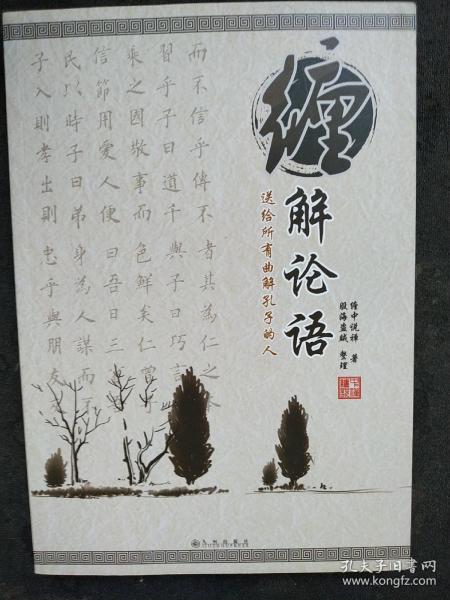 缠
解论语
送给所有曲解孔子的人
缠中说禅 著
股海盗贼 整理
而不信乎傳不 者其為仁之本
習乎子曰道千 與子曰巧
乘之國敬事而 色鮮矣仁曾子
信節用愛人使 曰吾日三
民以時子曰弟 身為人謀而不
子入則孝出則 忠乎與朋友交
九州出版社
孔夫子旧书网
www.kongfz.com